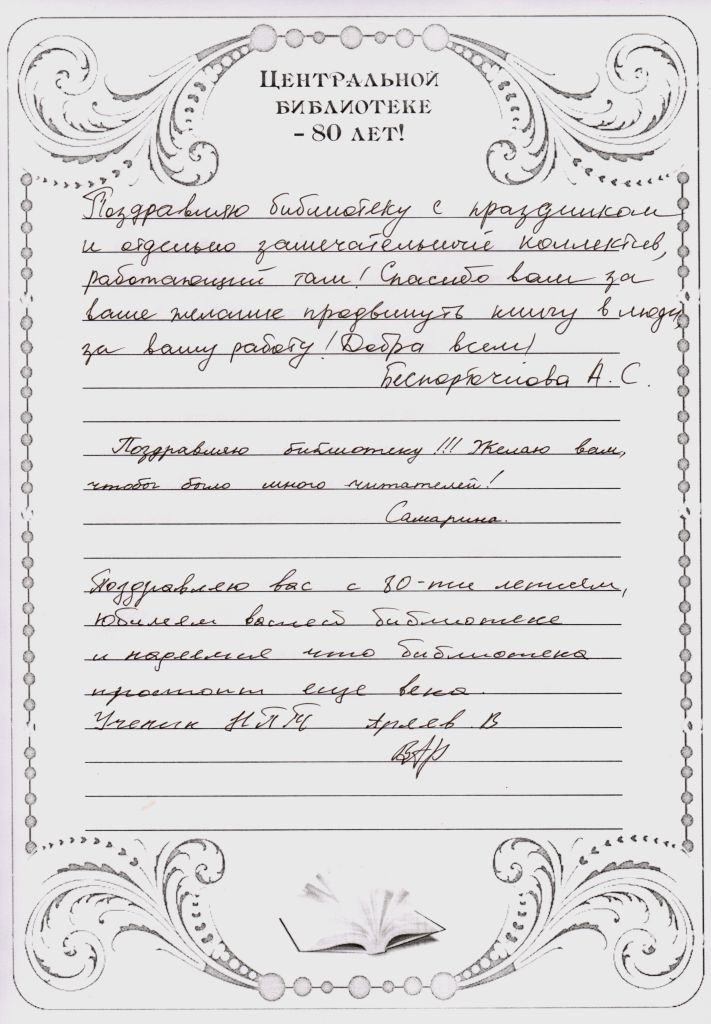 ЦЕНТРАЛЬНОЙ
БИБЛИОТЕКЕ
- 80 ЛЕТ!
Поздравляю библиотеку с праздником
и отдельно замечательный коллектив,
работающий там! Спасибо вам за
ваше желание продвинуть книгу в люди,
за вашу работу! Добра всем!
А. С.
Поздравляю библиотеку!!! Желаю вам,
чтобы было много читателей!
Самарина.
Поздравляю вас с 80-ти летием,
юбилеем вашей библиотеке
и надеемся что библиотека
простоит еще века.
Ученик НПТ Аряев В